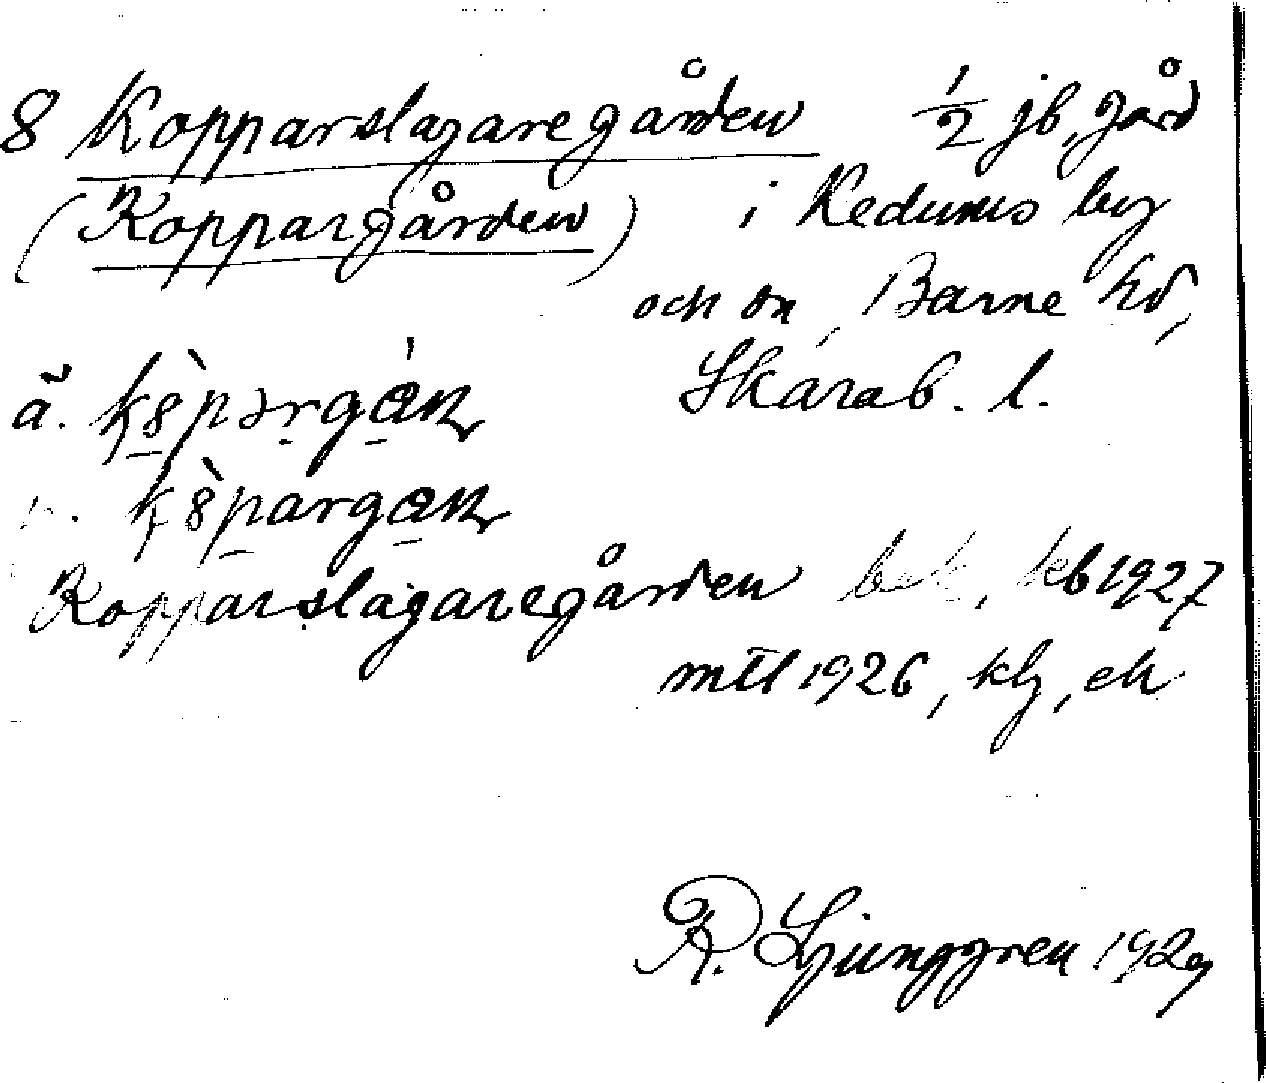 8 Kopparslagaregården 1/2 jb. gård
(Koppargården) i Kedums by
och sn, Barne hd,
Skarab. l.
ã. kȣ̀pərgàṇ
kȣ̀pargaṇ
Kopparslagaregården bek, kb 1927
mtl 1926, klj, ek
R. Ljunggren 1929